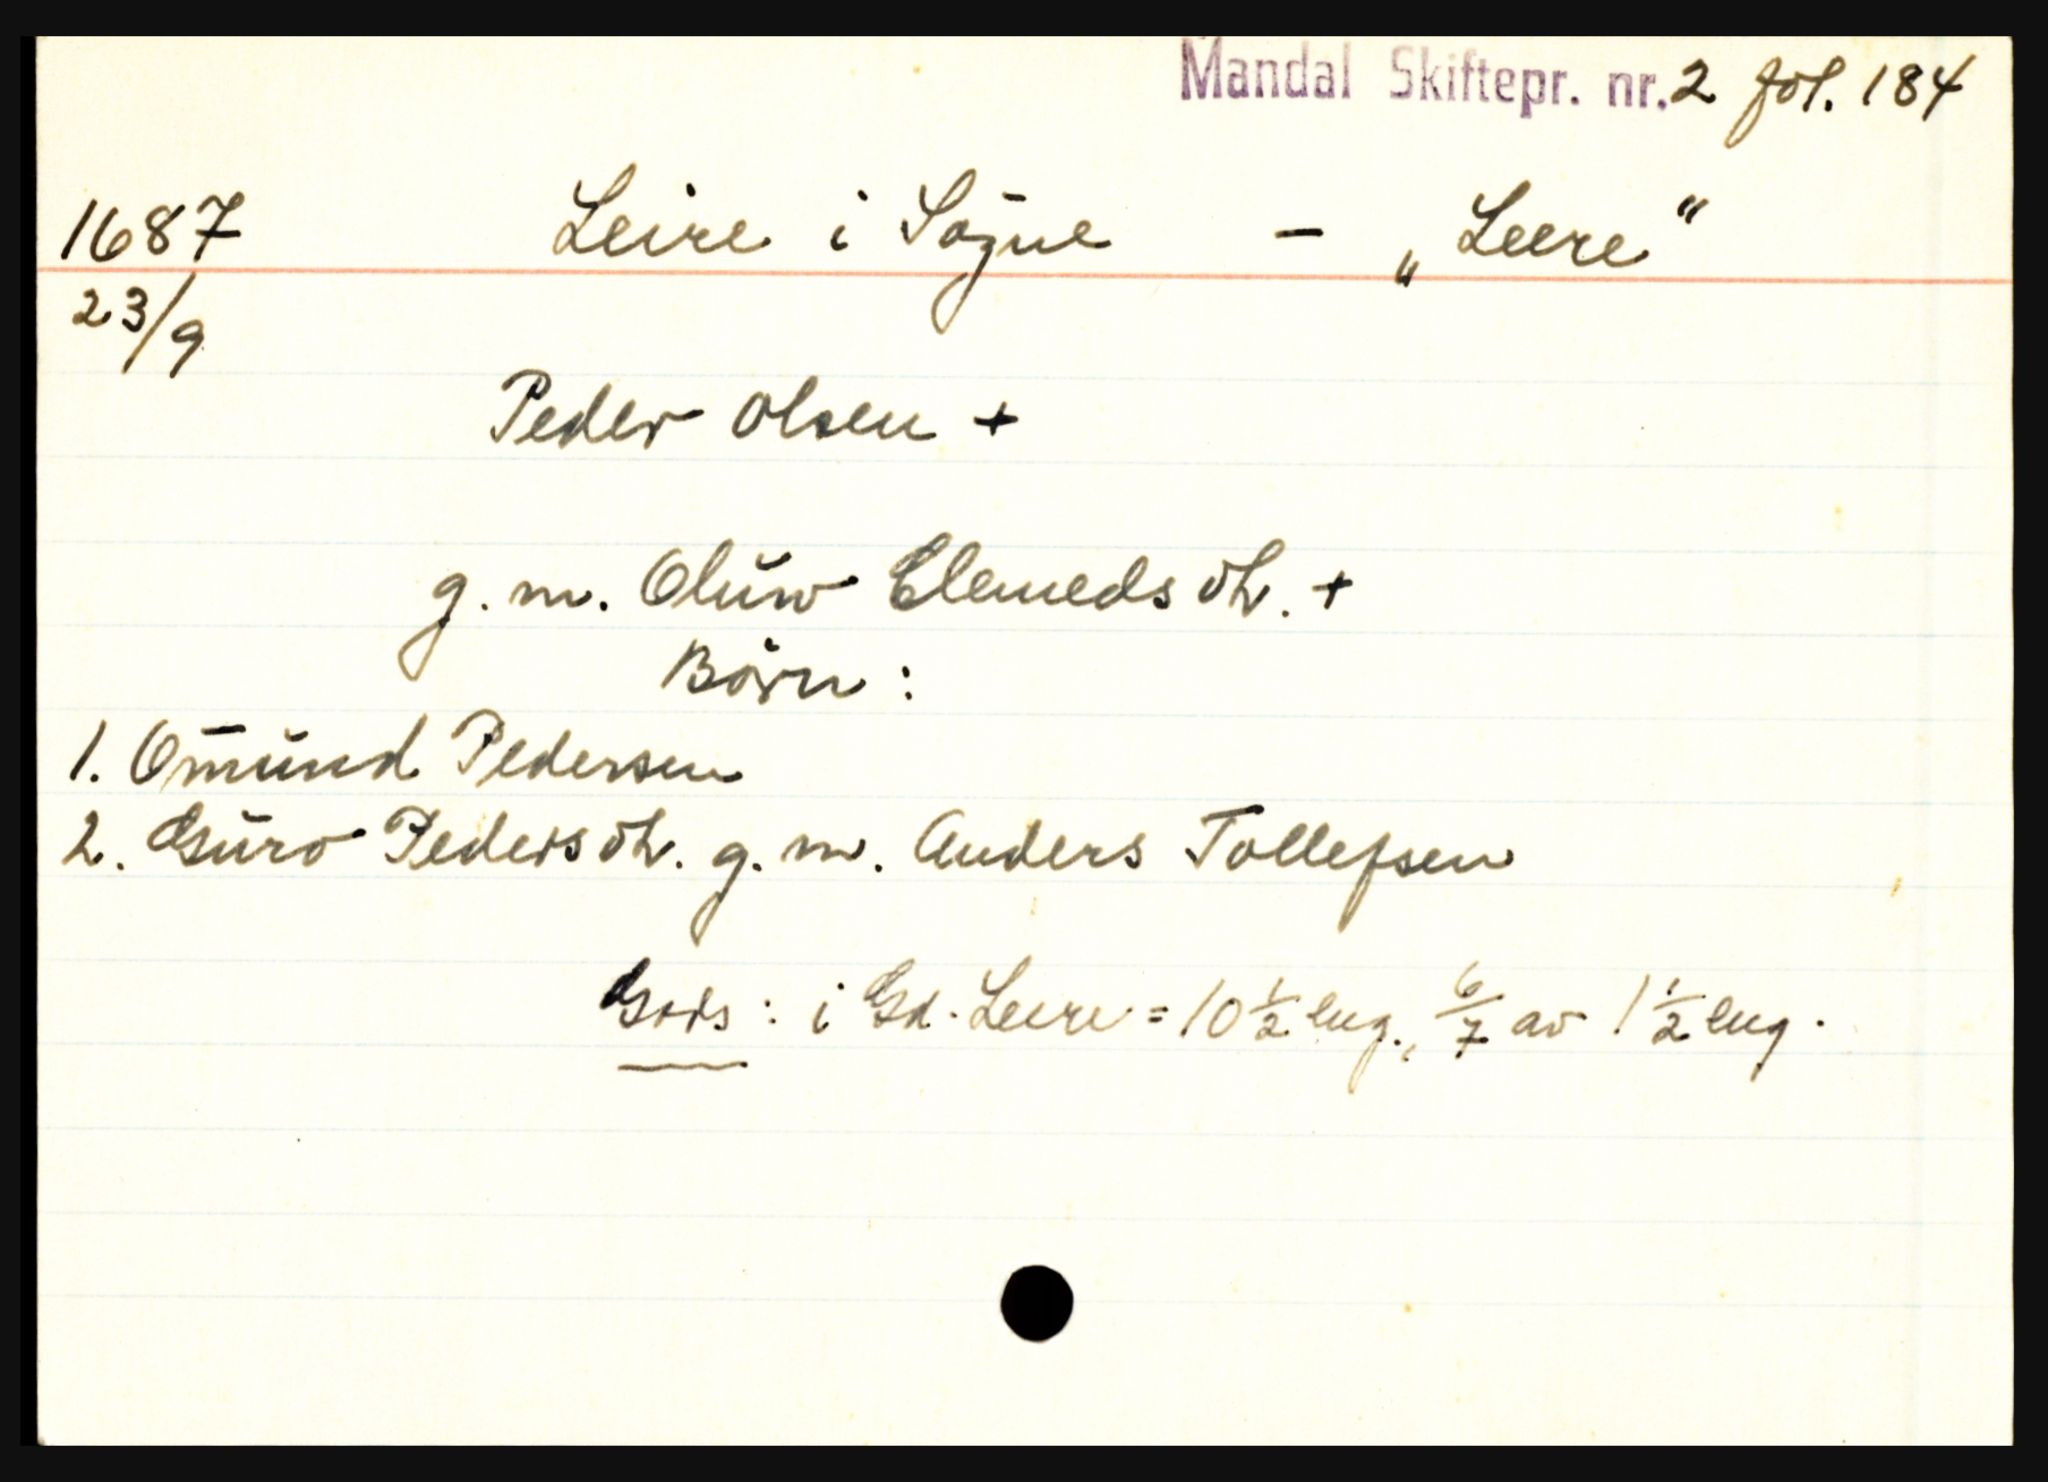 Mandal Skiftepr. nr. 2 fol. 184
1687 Leire i Søgne - „Leere“
23/9
Peder Olsen +
g. m. Oluw Clemedsdtr. +
Börn:
1. Om̄und Pedersen
2. Guro Pedersdtr. g. m. Anders Tollefsen
Gods: i Gd. Leere = 10 1/2 eng., 6/7 av 1 1/2 eng.